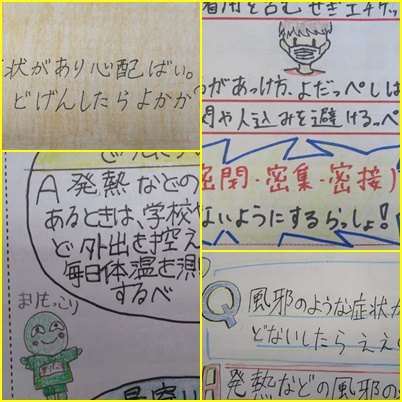 状があり心配ばい。
どげんしたらよかか
着用を含むせきエチケッ
があっけ方、よだっぺしは
や人込みを避けるっぺ
密閉・密集・密接)
ないようにするらっしょ!
A 発熱などの
あるときは、学校や
ど外出を控え
毎日体温を測
するべ
まりもっこり
最寄り
Q 風邪のような症状が
どないしたらええ
発熱などの風邪の